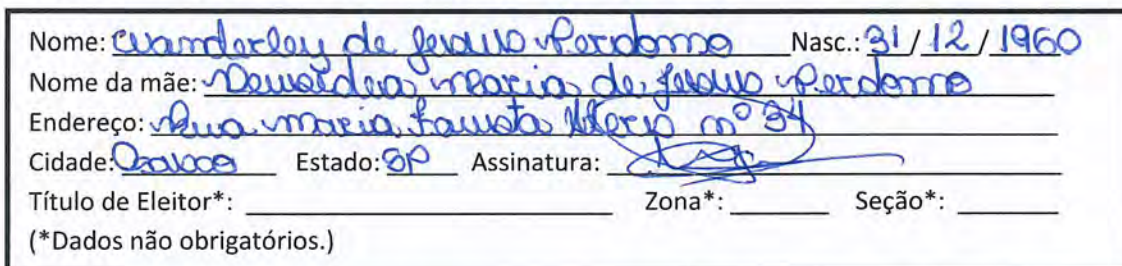 Nome: Wanderley de Jesus Perdomo Nasc.: 31/12/1960
Nome da mãe: Maria de Jesus Perdomo
Endereço: Rua Maria Fausta nº 34
Cidade: Osasco Estado: SP Assinatura:
Título de Eleitor*: Zona*: Seção*:
(*Dados não obrigatórios.)